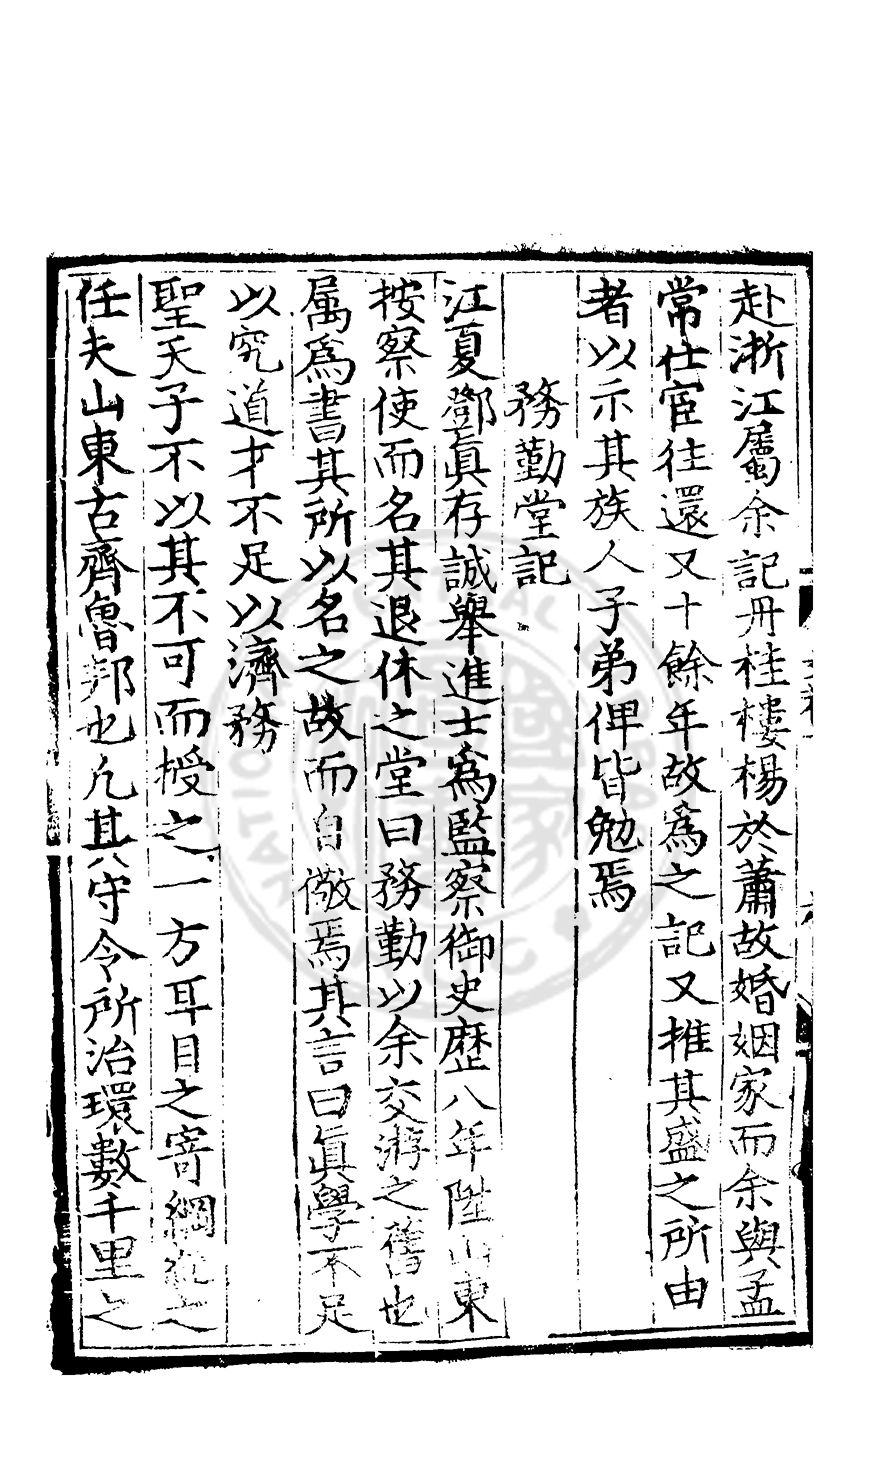 赴浙江屬余記丹桂樓楊於蕭故婚姻家而余與孟
常仕宦往還又十餘年故爲之記又推其盛之所由
者以示其族人子弟俾皆勉焉
務勤堂記
江夏鄧眞存誠舉進士爲監察御史歷八年陞山東
按察使而名其退休之堂曰務勤以余交游之舊也
属爲書其所以名之故而自儆焉其言曰眞學不足
以究道才不足以濟務
聖天子不以其不可而授之一方耳目之寄綱紀之
任夫山東古齊魯邦也凡其守令所治環數千里之